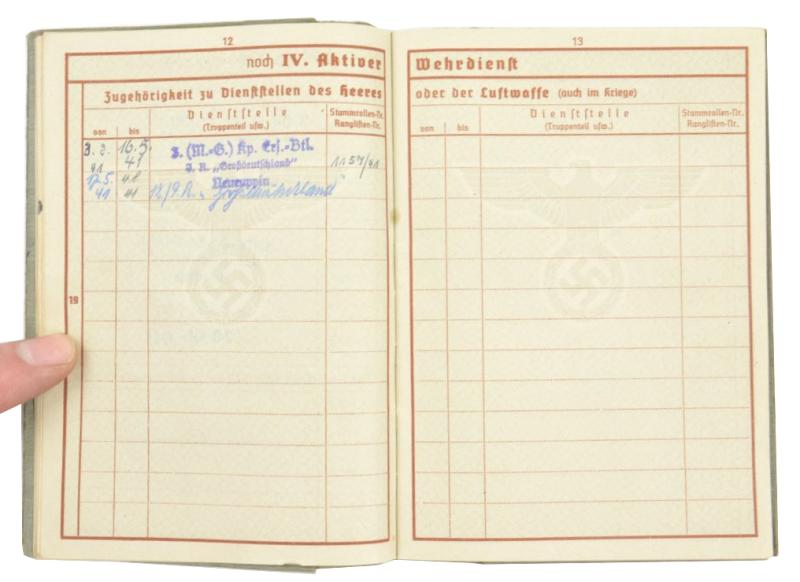 12
noch IV. Aktiver
Zugehörigkeit zu Dienststellen des Heeres
von
bis
Dienststelle
(Truppenteil usw.)
Stammrollen-Nr.
Ranglisten-Nr.
3. 2. 16. 5.
41 41
3. (M.-G.) Kp. Ers.-Btl.
J. R. „Großdeutschland"
Neuruppin
1157/41
17.5.
41 41
"Großdeutschland"
19
13
Wehrdienst
oder der Luftwaffe (auch im Kriege)
von
bis
Dienststelle
(Truppenteil usw.)
Stammrollen-Nr.
Ranglisten-Nr.